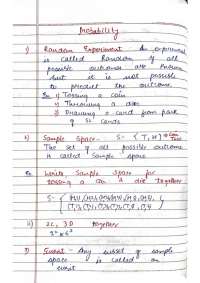 Probability
1) Random Experiment An experiment
is called Random if all
possible outcomes are known
but it is not possible
to predict the outcome.
Ex 1) Tossing a coin
2) Throwing a dice
3) Drawing a card from pack
of 52 cards
2) Sample Space - S = {T, H} → Coin
Toss
The set of all possible outcome
is called Sample space.
Ex Write Sample Space for
tossing a coin & die together
S =
ii) 2C, 3D together
3) Event - Any subset of sample
space is called an
event